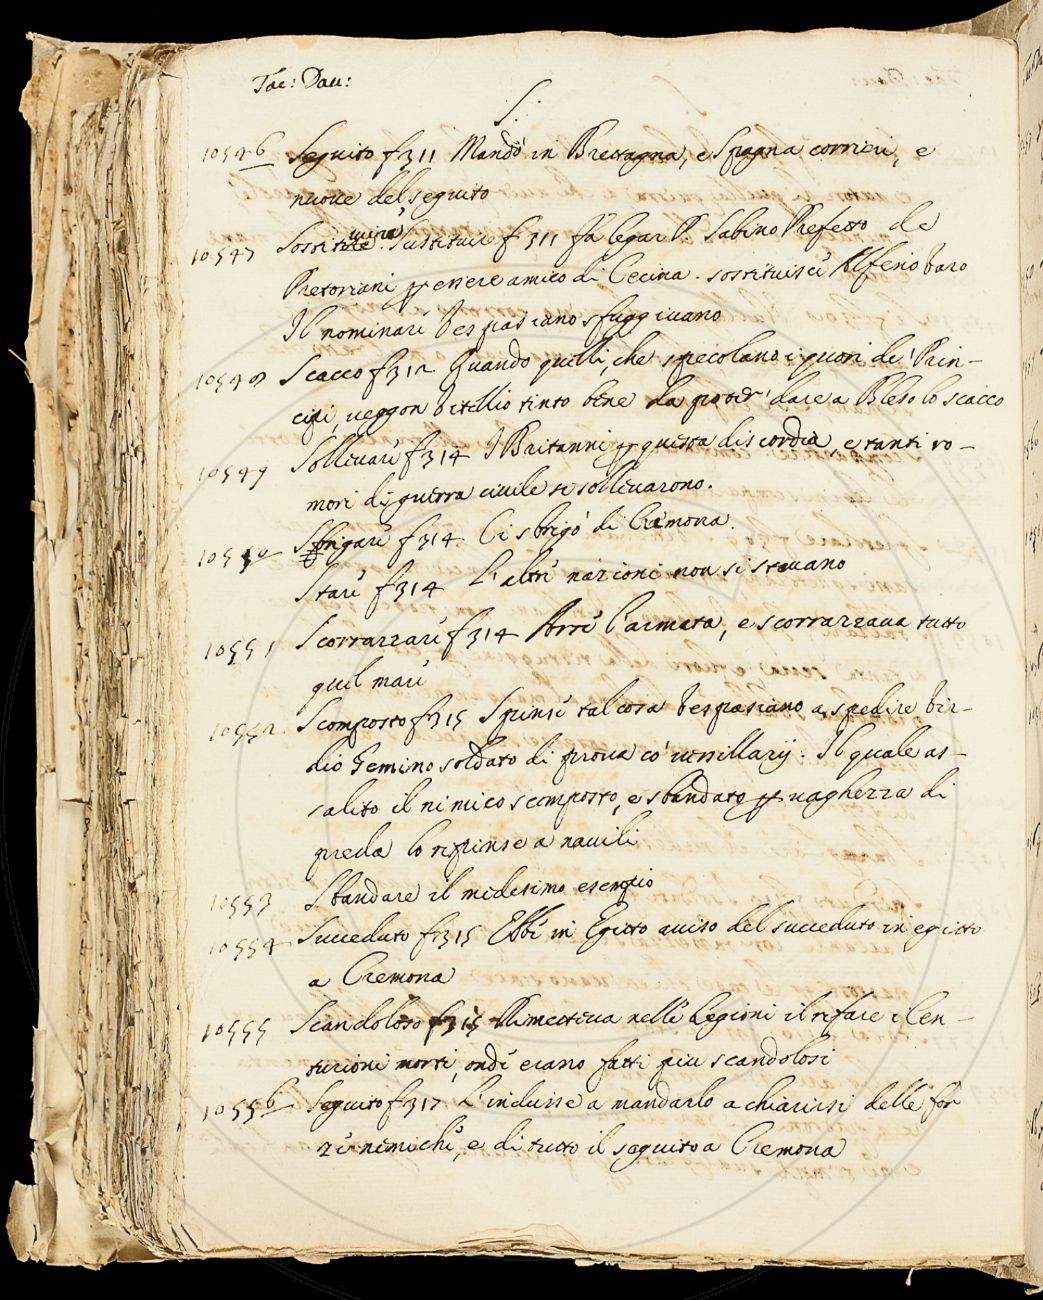 Tac: Dav:
S:
10546 Seguito f 311 Mandò in Brettagna, e Spagna corrieri, e
nuove del seguito
10547 Sostituire Sustituire f 311 fà legar P. Sabino Prefetto de
Pretoriani ꝑ essere amico di Cecina. sostituisce Alfeno Varo
Il nominare Vespasiano sfuggivano
10548 Scacco f 312 Quando quelli, che specolano i quori de' Prin-
cipi, veggon Vitellio tinto bene da poter dare a Bleso lo scacco
10549 Sollevare f 314 I Britanni ꝑ questa discordia, e tanti ro-
mori di guerra civile si sollevarono.
10550 Sbrigare f 314 Ci sbrigò di Cremona.
Stare f 314 L'altre nazioni non si stavano
10551 Scorrazzare f 314 Arse l'armata, e scorrazzava tutto
quel mare
10552 Scomposto f 315 Spinse tal cosa Vespasiano a spedire Vir-
dio Gemino soldato di prova co' vessillarij. Il quale as-
salito il nimico scomposto, e sbandato ꝑ vaghezza di
preda lo rispinse a navili
10553 Sbandare il medesimo esempio
10554 Succeduto f 315 Ebbe in Egitto aviso del succeduto in egitto
a Cremona
10555 Scandoloso f 315 Rimetteva nelle Legioni il rifare i Cen-
turioni morti, onde erano fatti piu scandolosi
10556 Seguito f 317 L'indusse a mandarlo a chiarirsi delle for
ze nemiche, e di tutto il seguito a Cremona